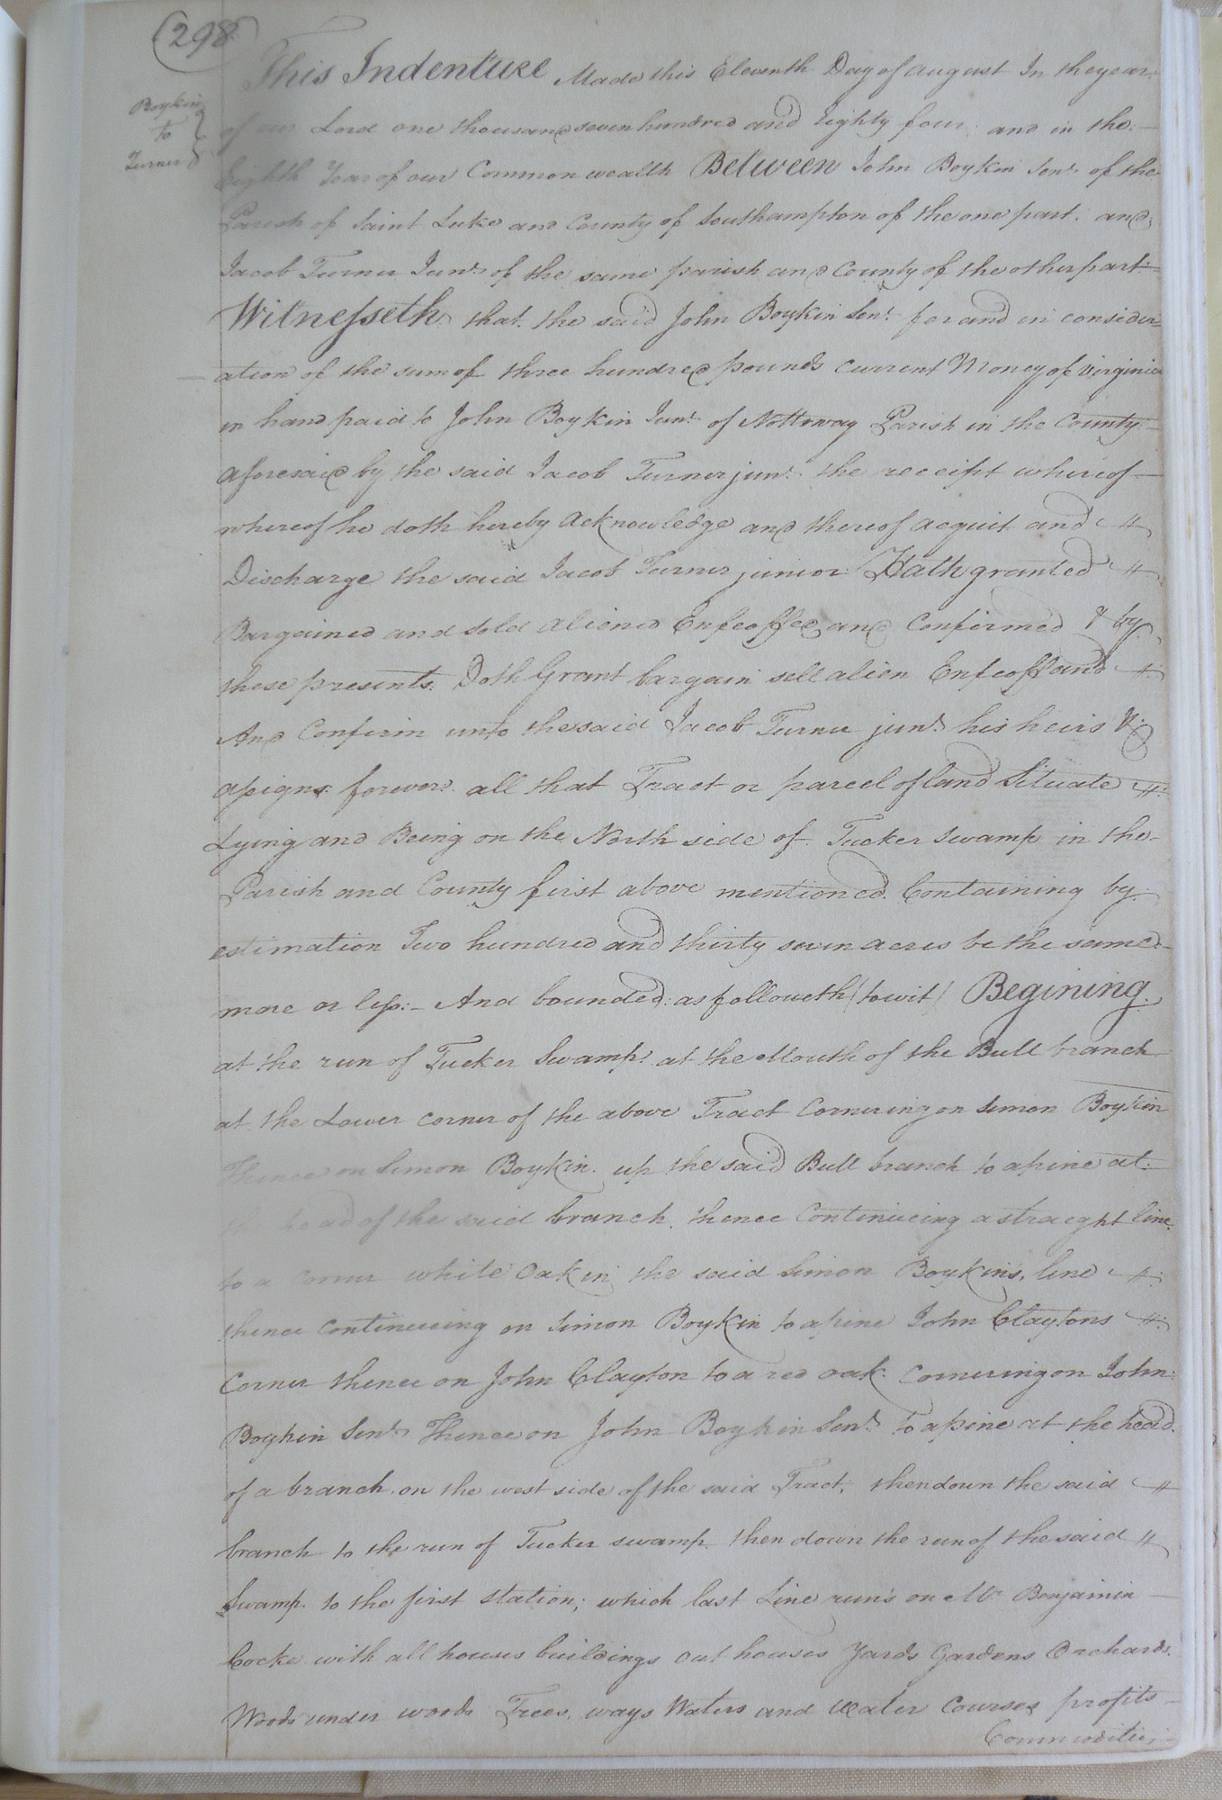 (298)
Boykin
to
Turner
This Indenture Made this Eleventh Day of August In the year
of our Lord one thousand seven hundred and Eighty four and in the
Eighth Year of our Common wealth Between John Boykin Senr. of the
Parish of Saint Luke and County of Southampton of the one part. and
Jacob Turner Junr. of the same parish and County of the other part
Witnesseth that the said John Boykin Senr. for and in consider=
ation of the sum of three hundred pounds Current Money of Virginia
in hand paid to John Boykin Junr. of Nottoway Parish in the County
aforesaid by the said Jacob Turner junr. the receipt whereof
whereof he doth hereby Acknowledge and thereof acquit and
Discharge the said Jacob Turner junior Hath granted
Bargained and sold aliened Enfeoffed and Confirmed & by
these presents. Doth Grant bargain sell alien Enfeoff and
And Confirm unto the said Jacob Turner junr. his heirs &
assigns forever all that Tract or parcel of land Situate
Lying and Being on the North side of Tucker Swamp in the
Parish and County first above mentioned. Containing by
estimation Two hundred and thirty seven acres be the same
more or less:- And bounded as followeth (towit) Begining
at the run of Tucker Swamp at the Mouth of the Bull branch
at the Lower corner of the above Tract Cornering on Simon Boykin
Thence on Simon Boykin up the said Bull branch to a pine at
the head of the said branch. thence Continueing a straight line
to a corner white Oak in the said Simon Boykins, line
thence continueing on Simon Boykin to a pine John Claytons
Corner thence on John Clayton to a red oak. Cornering on John
Boykin Senr. Thence on John Boykin Senr. to a pine at the head.
of a branch on the west side of the said Tract, then down the said
branch to the run of Tucker swamp then down the run of the said
Swamp. to the first station; which last Line runs on Mr. Benjamin
Cocke with all houses buildings out houses Yards Gardens Orchards.
Woods under woods Trees, ways Waters and Water Courses profits
Commodities